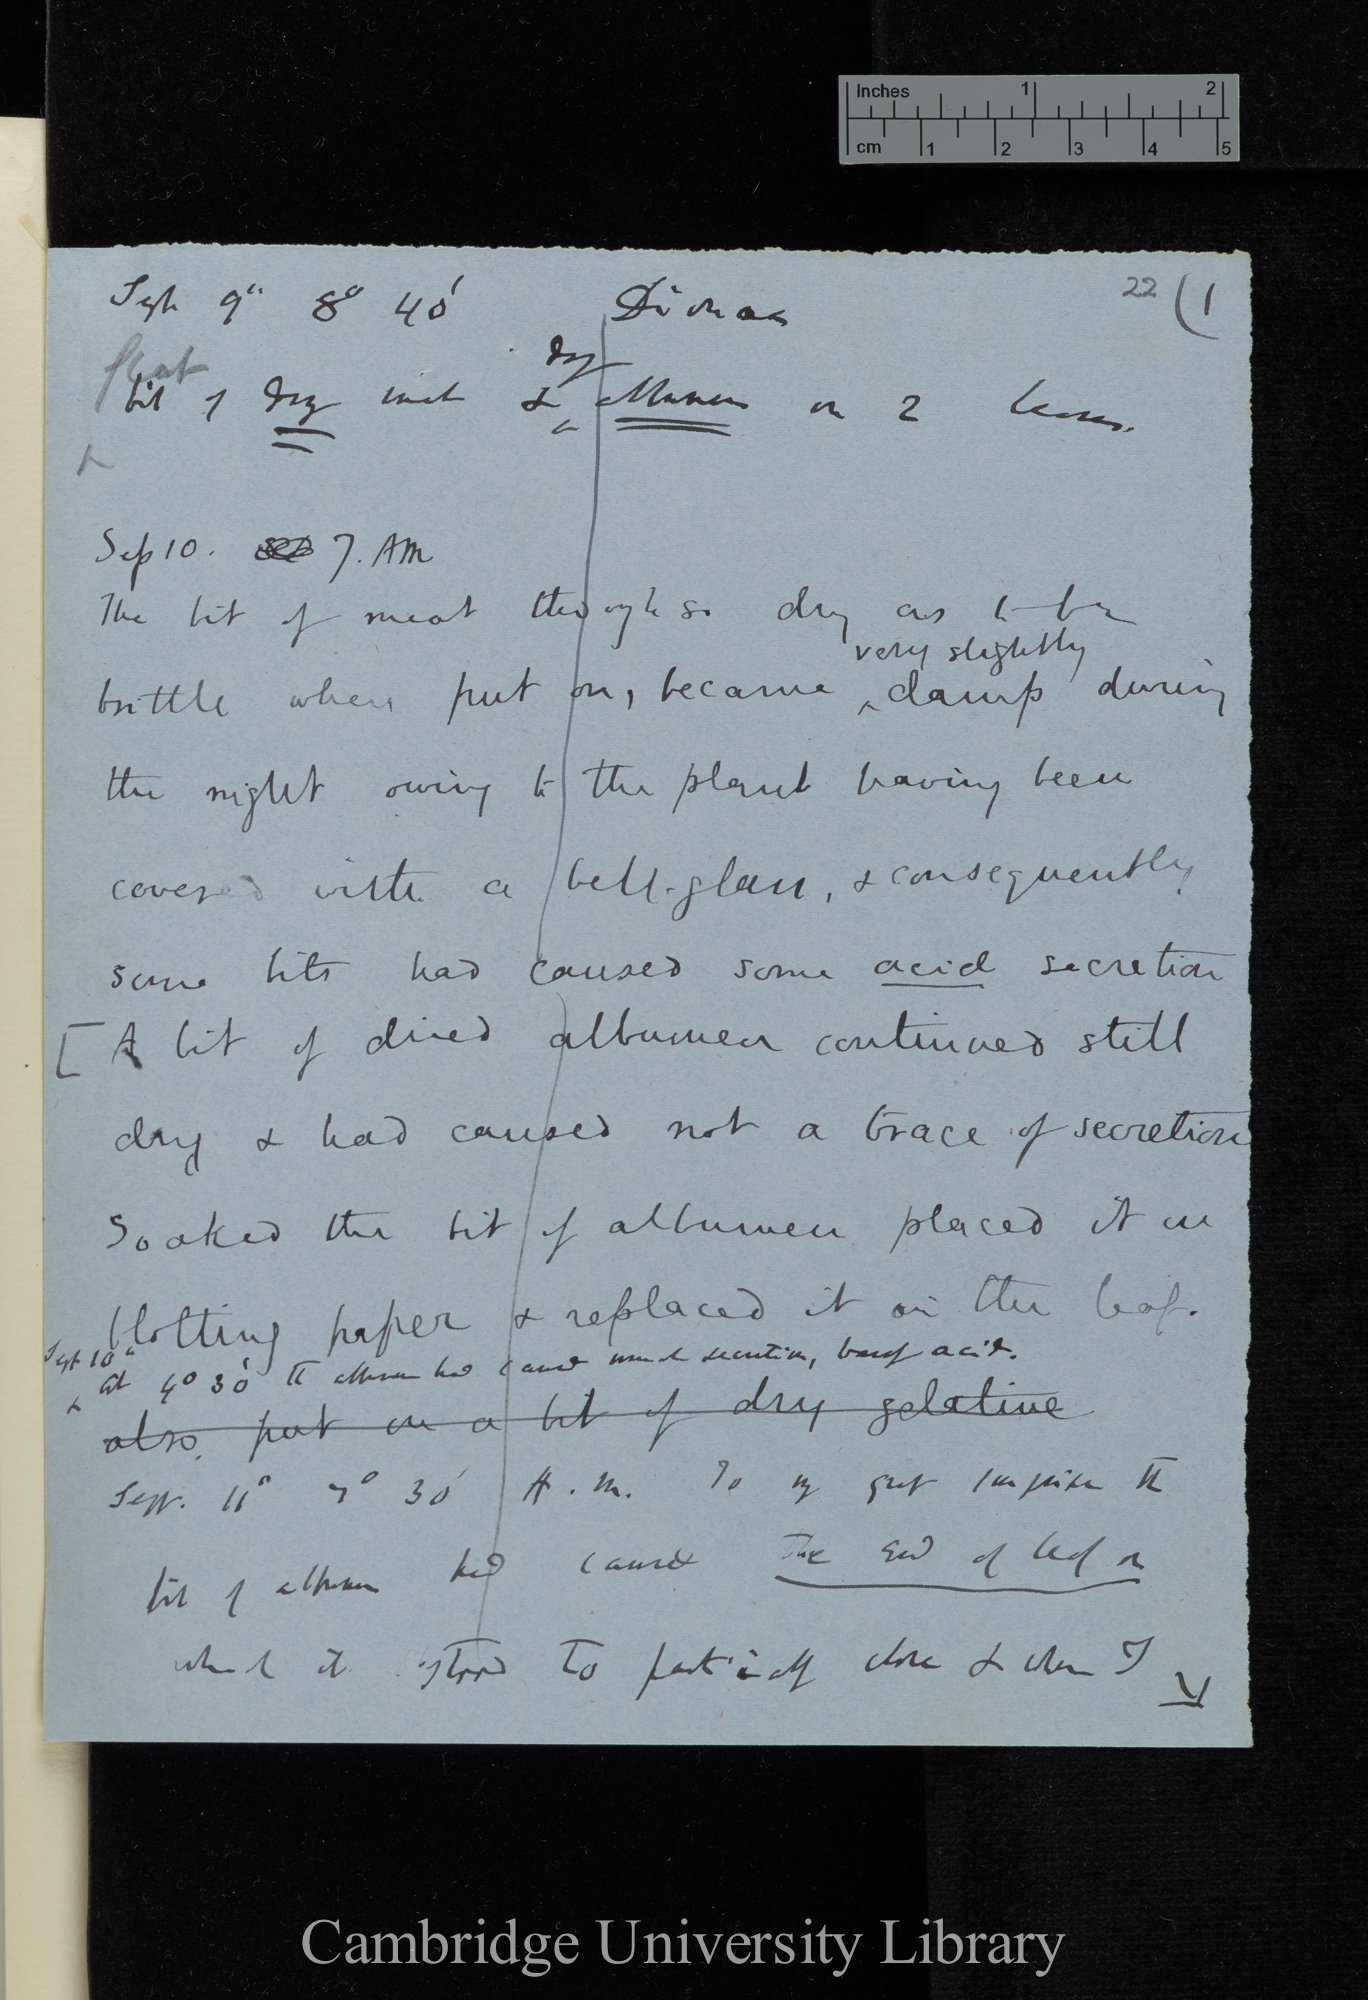 Inches 1 2
cm 1 2 3 4 5
22 (1
Sept 9° 8° 40' Dionaea
flat
dry
bit of dry meat & albumen on 2 leaves.
Sep 10. 7. AM
The bit of meat though so dry as to be
very slightly
brittle when put on, became damp during
the night owing to the plant having been
covered with a bell-glass, & consequently
some bits had caused some acid secretion
[A bit of dried albumen continued still
dry & had caused not a trace of secretion
Soaked the bit of albumen placed it on
blotting paper & replaced it on the leaf.
Sept 10°
at 4° 30' the albumen had caused much secretion, acid.
also put on a bit of dry gelatine
Sept. 11° 7° 30' A.M. To my great surprise the
bit of albumen had caused the end of leaf on
which it stood to partially close & when I
Cambridge University Library